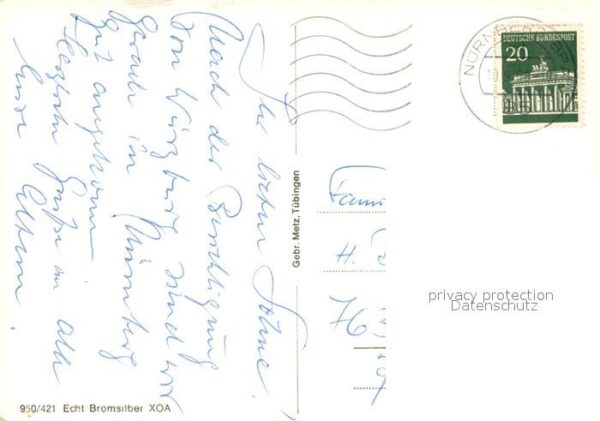 Ihr lieben Söhne!
Nach der Besichtigung
von Würzburg sind wir
gerade in Nürnberg
gut angekommen
herzliche Grüße an alle
Eure Eltern.
Gebr. Metz, Tübingen
950/421 Echt Bromsilber XOA
NÜRNBERG
DEUTSCHE BUNDESPOST
20
Fami
H.
76
privacy protection
Datenschutz